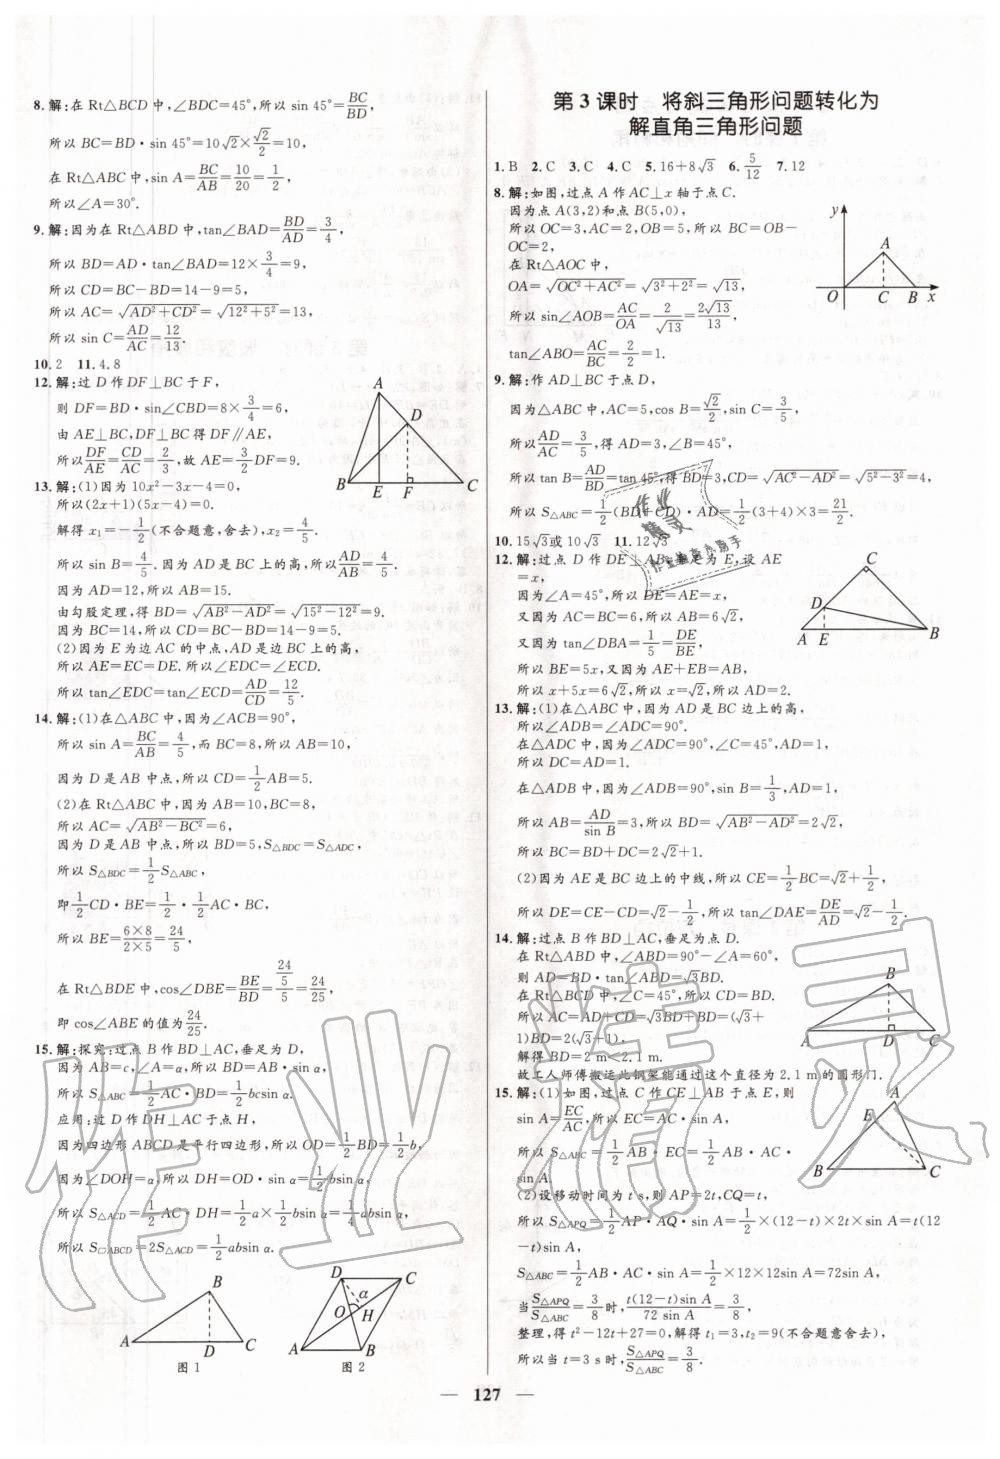 8.解:在 Rt△BCD 中,∠BDC=45°,所以 sin 45°=BC/BD,
所以 BC=BD·sin 45°=10√2×√2/2=10,
在 Rt△ABC 中,sin A=BC/AB=10/20=1/2,
所以∠A=30°.
9.解:因为在 Rt△ABD 中,tan∠BAD=BD/AD=3/4,
所以 BD=AD·tan∠BAD=12×3/4=9,
所以 CD=BC-BD=14-9=5,
所以 AC=√(AD²+CD²)=√(12²+5²)=13,
所以 sin C=AD/AC=12/13.
10.2 11.4.8
12.解:过 D 作 DF⊥BC 于 F,
则 DF=BD·sin∠CBD=8×3/4=6,
由 AE⊥BC,DF⊥BC 得 DF∥AE,
所以DF/AE=CD/AC=2/3,故 AE=3/2DF=9.
A
D
B
E
F
C
13.解:(1)因为 10x²-3x-4=0,
所以(2x+1)(5x-4)=0.
解得 x₁=-1/2(不合题意,舍去),x₂=4/5.
所以 sin B=4/5.因为 AD 是 BC 上的高,所以AD/AB=4/5.
因为 AD=12,所以 AB=15.
由勾股定理,得 BD=√(AB²-AD²)=√(15²-12²)=9.
因为 BC=14,所以 CD=BC-BD=14-9=5.
(2)因为 E 为边 AC 的中点,AD 是边 BC 上的高,
所以 AE=EC=DE.所以∠EDC=∠ECD.
所以 tan∠EDC=tan∠ECD=AD/CD=12/5.
14.解:(1)在△ABC 中,因为∠ACB=90°,
所以 sin A=BC/AB=4/5,而 BC=8,所以 AB=10,
因为 D 是 AB 中点,所以 CD=1/2AB=5.
(2)在 Rt△ABC 中,因为 AB=10,BC=8,
所以 AC=√(AB²-BC²)=6,
因为 D 是 AB 中点,所以 BD=5,S△BDC=S△ADC,
所以 S△BDC=1/2S△ABC,
即1/2CD·BE=1/2·1/2AC·BC,
所以 BE=6×8/2×5=24/5,
在 Rt△BDE 中,cos∠DBE=BE/BD=(24/5)/5=24/25,
即 cos∠ABE 的值为24/25.
15.解:探究:过点 B 作 BD⊥AC,垂足为 D,
因为 AB=c,∠A=α,所以 BD=AB·sin α,
所以 S△ABC=1/2AC·BD=1/2bcsin α.
应用:过 D 作 DH⊥AC 于点 H,
因为四边形 ABCD 是平行四边形,所以 OD=1/2BD=1/2b,
因为∠DOH=α,所以 DH=OD·sin α=1/2bsin α,
所以 S△ACD=1/2AC·DH=1/2a×1/2bsin α=1/4absin α,
所以 S▱ABCD=2S△ACD=1/2absin α.
B
A
D
C
图 1
D
C
α
O
H
A
B
图 2
第 3 课时 将斜三角形问题转化为
解直角三角形问题
1.B 2.C 3.C 4.C 5.16+8√3 6.5/12 7.12
8.解:如图,过点 A 作 AC⊥x 轴于点 C.
因为点 A(3,2)和点 B(5,0),
所以 OC=3,AC=2,OB=5,所以 BC=OB-
OC=2,
在 Rt△AOC 中,
OA=√(OC²+AC²)=√(3²+2²)=√13,
所以 sin∠AOB=AC/OA=2/√13=2√13/13,
tan∠ABO=AC/BC=2/2=1.
y
A
O
C
B
x
9.解:作 AD⊥BC 于点 D,
因为△ABC 中,AC=5,cos B=√2/2,sin C=3/5,
所以AD/AC=3/5,得 AD=3,∠B=45°,
所以 tan B=AD/BD=tan 45°,得 BD=3,CD=√(AC²-AD²)=√(5²-3²)=4,
所以 S△ABC=1/2(BD+CD)·AD=1/2(3+4)×3=21/2.
10.15√3或 10√3 11.12√3
12.解:过点 D 作 DE⊥AB,垂足为 E,设 AE
=x,
因为∠A=45°,所以 DE=AE=x,
又因为 AC=BC=6,所以 AB=6√2,
又因为 tan∠DBA=1/5=DE/BE,
所以 BE=5x,又因为 AE+EB=AB,
所以 x+5x=6√2,所以 x=√2,所以 AD=2.
C
D
A
E
B
13.解:(1)在△ABC 中,因为 AD 是 BC 边上的高,
所以∠ADB=∠ADC=90°.
在△ADC 中,因为∠ADC=90°,∠C=45°,AD=1,
所以 DC=AD=1.
在△ADB 中,因为∠ADB=90°,sin B=1/3,AD=1,
所以 AB=AD/sin B=3,所以 BD=√(AB²-AD²)=2√2,
所以 BC=BD+DC=2√2+1.
(2)因为 AE 是 BC 边上的中线,所以 CE=1/2BC=√2+1/2,
所以 DE=CE-CD=√2-1/2,所以 tan∠DAE=DE/AD=√2-1/2.
14.解:过点 B 作 BD⊥AC,垂足为点 D.
在 Rt△ABD 中,∠ABD=90°-∠A=60°,
则 AD=BD·tan∠ABD=√3BD.
在 Rt△BCD 中,∠C=45°,所以 CD=BD.
所以 AC=AD+CD=√3BD+BD=(√3+
1)BD=2(√3+1),
解得 BD=2 m<2.1 m.
故工人师傅搬运此钢架能通过这个直径为 2.1 m的圆形门.
B
A
D
C
15.解:(1)如图,过点 C 作 CE⊥AB 于点 E,则
sin A=EC/AC,所以 EC=AC·sin A,
所以 S△ABC=1/2AB·EC=1/2AB·AC·
sin A.
A
E
B
C
(2)设移动时间为 t s,则 AP=2t,CQ=t,
所以 S△APQ=1/2AP·AQ·sin A=1/2×(12-t)×2t×sin A=t(12
-t)sin A,
S△ABC=1/2AB·AC·sin A=1/2×12×12sin A=72sin A,
当S△APQ/S△ABC=3/8时,t(12-t)sin A/72 sin A=3/8,
整理,得 t²-12t+27=0,解得 t₁=3,t₂=9(不合题意舍去),
所以当 t=3 s 时,S△APQ/S△ABC=3/8.
作业
精灵
作业检查小助手
作业精灵
— 127 —